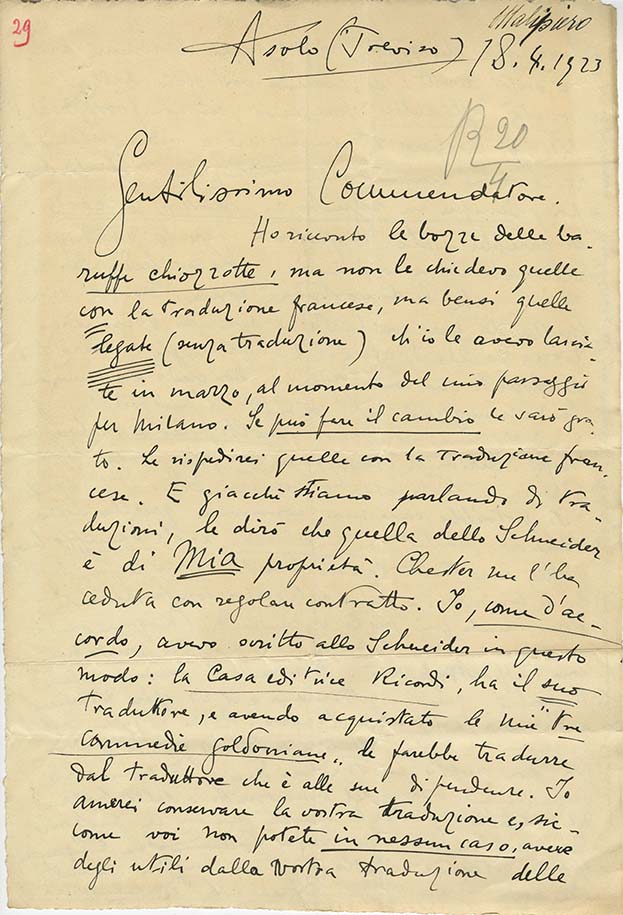 29
Malipiero
Asolo (Treviso) 18.4.1923
R 20
4
Gentilissimo Commendatore.
Ho ricevuto le bozze delle ba-
ruffe chiozzotte, ma non le chiedevo quelle
con la traduzione francese, ma bensì quelle
legate (senza traduzione) ch'io le avevo lascia-
te in marzo, al momento del mio passaggio
per Milano. Se può fare il cambio le sarò gra-
to. Le rispedirei quelle con la traduzione fran-
cese. E giacchè stiamo parlando di tra-
duzioni, le dirò che quella dello Schneider
è di Mia proprietà. Chester me l'ha
ceduta con regolare contratto. Io, come d'ac-
cordo, avevo scritto allo Schneider in questo
modo: la Casa editrice Ricordi, ha il suo
traduttore, e avendo acquistato le mie "tre
commedie goldoniane" le farebbe tradurre
dal traduttore che è alle sue dipendenze. Io
amerei conservare la vostra traduzione e, sic-
come voi non potete in nessun caso, avere
degli utili dalla vostra traduzione delle